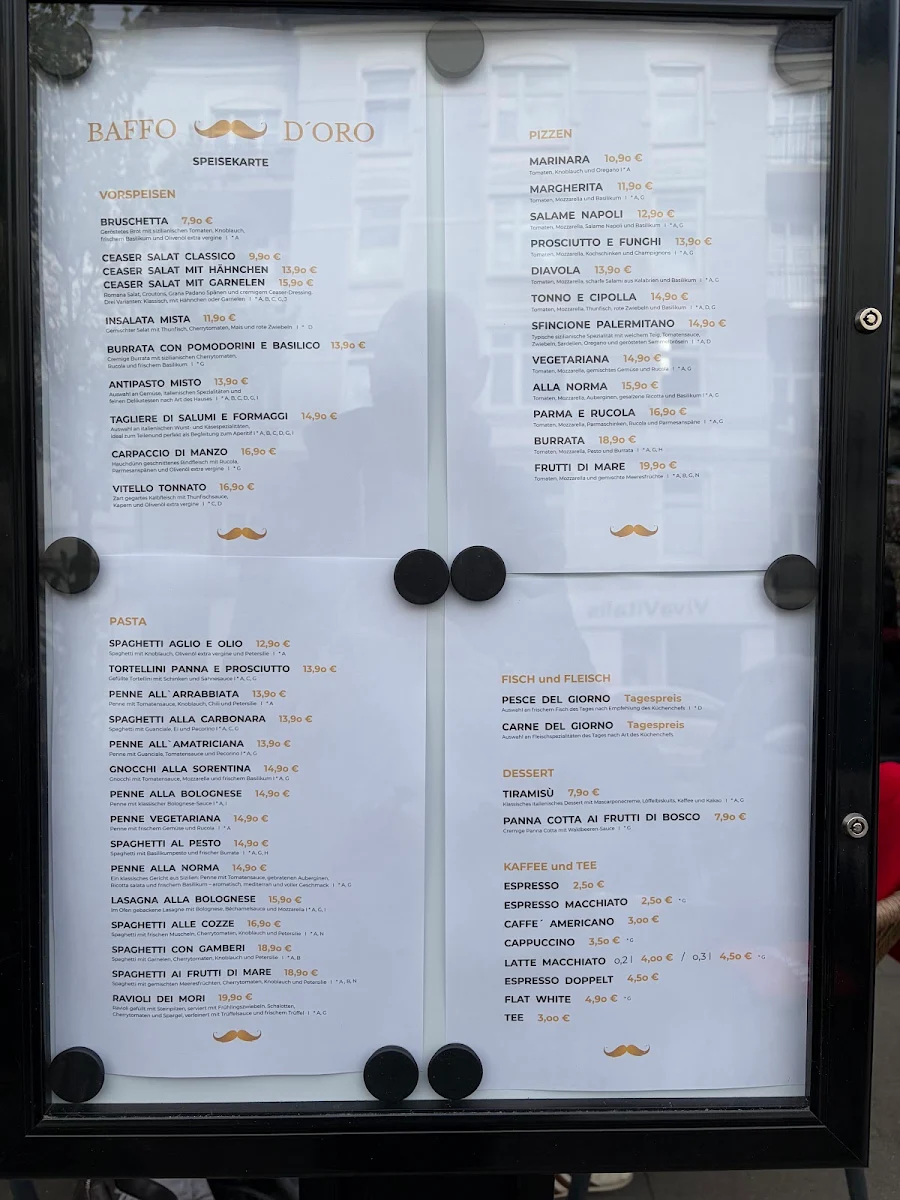 BAFFO D´ORO
SPEISEKARTE
VORSPEISEN
BRUSCHETTA 7,90 €
Geröstetes Brot mit sizilianischen Tomaten, Knoblauch,
frischem Basilikum und Olivenöl extra vergine | *A
CEASER SALAT CLASSICO 9,90 €
CEASER SALAT MIT HÄHNCHEN 13,90 €
CEASER SALAT MIT GARNELEN 15,90 €
Romana Salat, Croutons, Grana Padano Spänen und cremigem Ceaser-Dressing.
Drei Varianten: Klassisch, mit Hähnchen oder Garnelen | *A, B, C, G, J
INSALATA MISTA 11,90 €
Gemischter Salat mit Thunfisch, Cherrytomaten, Mais und rote Zwiebeln | * D
BURRATA CON POMODORINI E BASILICO 13,90 €
Cremige Burrata mit sizilianischen Cherrytomaten,
Rucola und frischem Basilikum | *G
ANTIPASTO MISTO 13,90 €
Auswahl an Gemüse, Italienischen Spezialitäten und
feinen Delikatessen nach Art des Hauses | *A, B, C, D, G, I
TAGLIERE DI SALUMI E FORMAGGI 14,90 €
Auswahl an italienischen Wurst- und Käsespezialitäten,
Ideal zum Teilen und perfekt als Begleitung zum Aperitif I * A, B, C, D, G, I
CARPACCIO DI MANZO 16,90 €
Hauchdünn geschnittenes Rindfleisch mit Rucola,
Parmesanspänen und Olivenöl extra vergine | *G
VITELLO TONNATO 16,90 €
Zart gegartes Kalbfleisch mit Thunfischsauce,
Kapern und Olivenöl extra vergine | *C, D
PIZZEN
MARINARA 10,90 €
Tomaten, Knoblauch und Oregano | *A
MARGHERITA 11,90 €
Tomaten, Mozzarella und Basilikum | *A, G
SALAME NAPOLI 12,90 €
Tomaten, Mozzarella, Salame Napoli und Basilikum | *A, G
PROSCIUTTO E FUNGHI 13,90 €
Tomaten, Mozzarella, Kochschinken und Champignons | *A, G
DIAVOLA 13,90 €
Tomaten, Mozzarella, scharfe Salami aus Kalabrien und Basilikum | *A, G
TONNO E CIPOLLA 14,90 €
Tomaten, Mozzarella, Thunfisch, rote Zwiebeln und Basilikum | *A, D, G
SFINCIONE PALERMITANO 14,90 €
Typische sizilianische Spezialität mit weichem Teig, Tomatensauce,
Zwiebeln, Sardellen, Oregano und gerösteten Semmelbröseln | *A, D
VEGETARIANA 14,90 €
Tomaten, Mozzarella, gemischtes Gemüse und Rucola | *A, G
ALLA NORMA 15,90 €
Tomaten, Mozzarella, Auberginen, gesalzene Ricotta und Basilikum | *A, G
PARMA E RUCOLA 16,90 €
Tomaten, Mozzarella, Parmaschinken, Rucola und Parmesanspäne | *A, G
BURRATA 18,90 €
Tomaten, Mozzarella, Pesto und Burrata | *A, G, H
FRUTTI DI MARE 19,90 €
Tomaten, Mozzarella und gemischte Meeresfrüchte | *A, B, G, N
PASTA
SPAGHETTI AGLIO E OLIO 12,90 €
Spaghetti mit Knoblauch, Olivenöl extra vergine und Petersilie | *A
TORTELLINI PANNA E PROSCIUTTO 13,90 €
Gefüllte Tortellini mit Schinken und Sahnesauce | *A, C, G
PENNE ALL`ARRABBIATA 13,90 €
Penne mit Tomatensauce, Knoblauch, Chili und Petersilie | *A
SPAGHETTI ALLA CARBONARA 13,90 €
Spaghetti mit Guanciale, Ei und Pecorino | *A, C, G
PENNE ALL`AMATRICIANA 13,90 €
Penne mit Guanciale, Tomatensauce und Pecorino | *A, G
GNOCCHI ALLA SORENTINA 14,90 €
Gnocchi mit Tomatensauce, Mozzarella und frischem Basilikum | *A, G
PENNE ALLA BOLOGNESE 14,90 €
Penne mit klassischer Bolognese-Sauce | *A, I
PENNE VEGETARIANA 14,90 €
Penne mit frischem Gemüse und Rucola | *A
SPAGHETTI AL PESTO 14,90 €
Spaghetti mit Basilikumpesto und frischer Burrata | *A, G, H
PENNE ALLA NORMA 14,90 €
Ein klassisches Gericht aus Sizilien: Penne mit Tomatensauce, gebratenen Auberginen,
Ricotta salata und frischem Basilikum – aromatisch, mediterran und voller Geschmack | *A, G
LASAGNA ALLA BOLOGNESE 15,90 €
Im Ofen gebackene Lasagne mit Bolognese, Béchamelsauce und Mozzarella | *A, G, I
SPAGHETTI ALLE COZZE 16,90 €
Spaghetti mit frischen Muscheln, Cherrytomaten, Knoblauch und Petersilie | *A, N
SPAGHETTI CON GAMBERI 18,90 €
Spaghetti mit Garnelen, Cherrytomaten, Knoblauch und Petersilie | *A, B
SPAGHETTI AI FRUTTI DI MARE 18,90 €
Spaghetti mit gemischten Meeresfrüchten, Cherrytomaten, Knoblauch und Petersilie | *A, B, N
RAVIOLI DEI MORI 19,90 €
Ravioli gefüllt mit Steinpilzen, serviert mit Frühlingszwiebeln, Schalotten,
Cherrytomaten und Spargel, verfeinert mit Trüffelsauce und frischem Trüffel | *A, G
FISCH und FLEISCH
PESCE DEL GIORNO Tagespreis
Auswahl an frischem Fisch des Tages nach Empfehlung des Küchenchefs | *D
CARNE DEL GIORNO Tagespreis
Auswahl an Fleischspezialitäten des Tages nach Art des Küchenchefs
DESSERT
TIRAMISÙ 7,90 €
Klassisches italienisches Dessert mit Mascarponecreme, Löffelbiskuits, Kaffee und Kakao | *A, G
PANNA COTTA AI FRUTTI DI BOSCO 7,90 €
Cremige Panna Cotta mit Waldbeeren-Sauce | *G
KAFFEE und TEE
ESPRESSO 2,50 €
ESPRESSO MACCHIATO 2,50 € *G
CAFFE´ AMERICANO 3,00 €
CAPPUCCINO 3,50 € *G
LATTE MACCHIATO 0,2 l 4,00 € / 0,3 l 4,50 € *G
ESPRESSO DOPPELT 4,50 €
FLAT WHITE 4,90 € *G
TEE 3,00 €